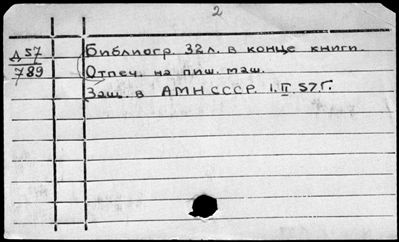 2
Д 57
789
Библиогр. 32 л. в конце книги.
Отпеч. на пиш. маш.
Защ. в АМН СССР. 1.II.57 г.